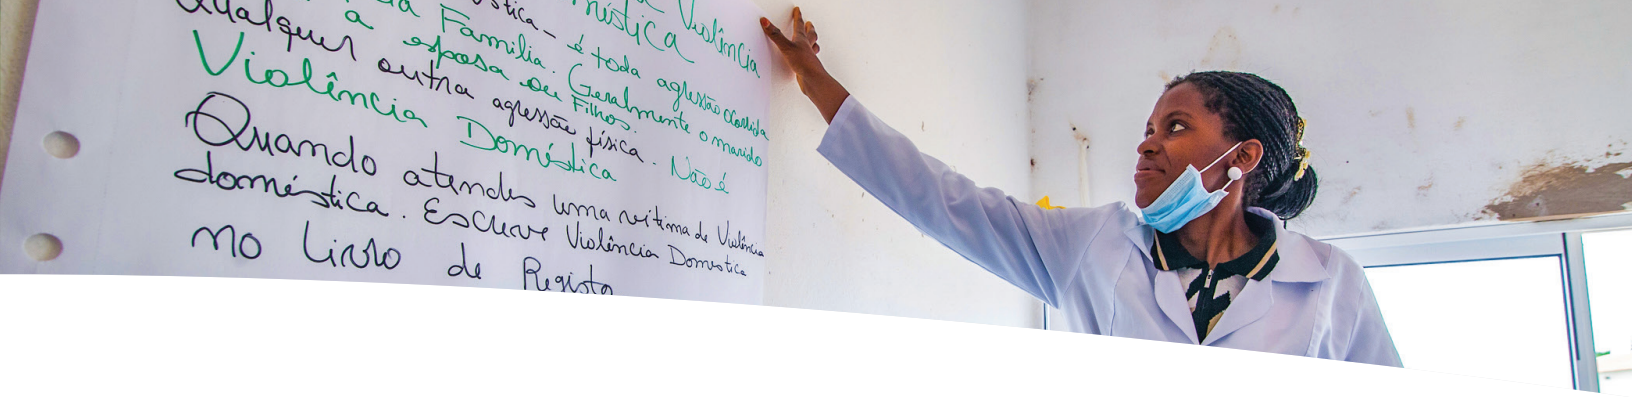 Violência
ística – é toda agressão ocorrida
a Familia. Geralmente o marido
a esposa ou Filhos.
Qualquer outra agressão física. Não é
Violência Doméstica
Quando atendes uma vitima de Violência
doméstica. Escreve Violência Domestica
no Livro de Registo